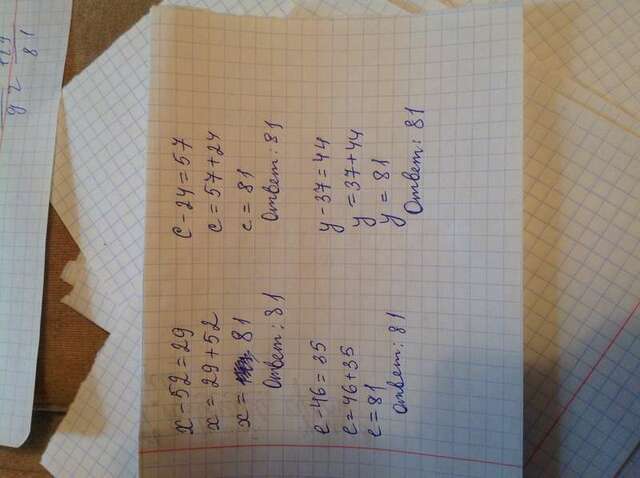 x - 52 = 29
x = 29 + 52
x = 81
Ответ: 81
c - 24 = 57
c = 57 + 24
c = 81
Ответ: 81
e - 46 = 35
e = 46 + 35
e = 81
Ответ: 81
y - 37 = 44
y = 37 + 44
y = 81
Ответ: 81